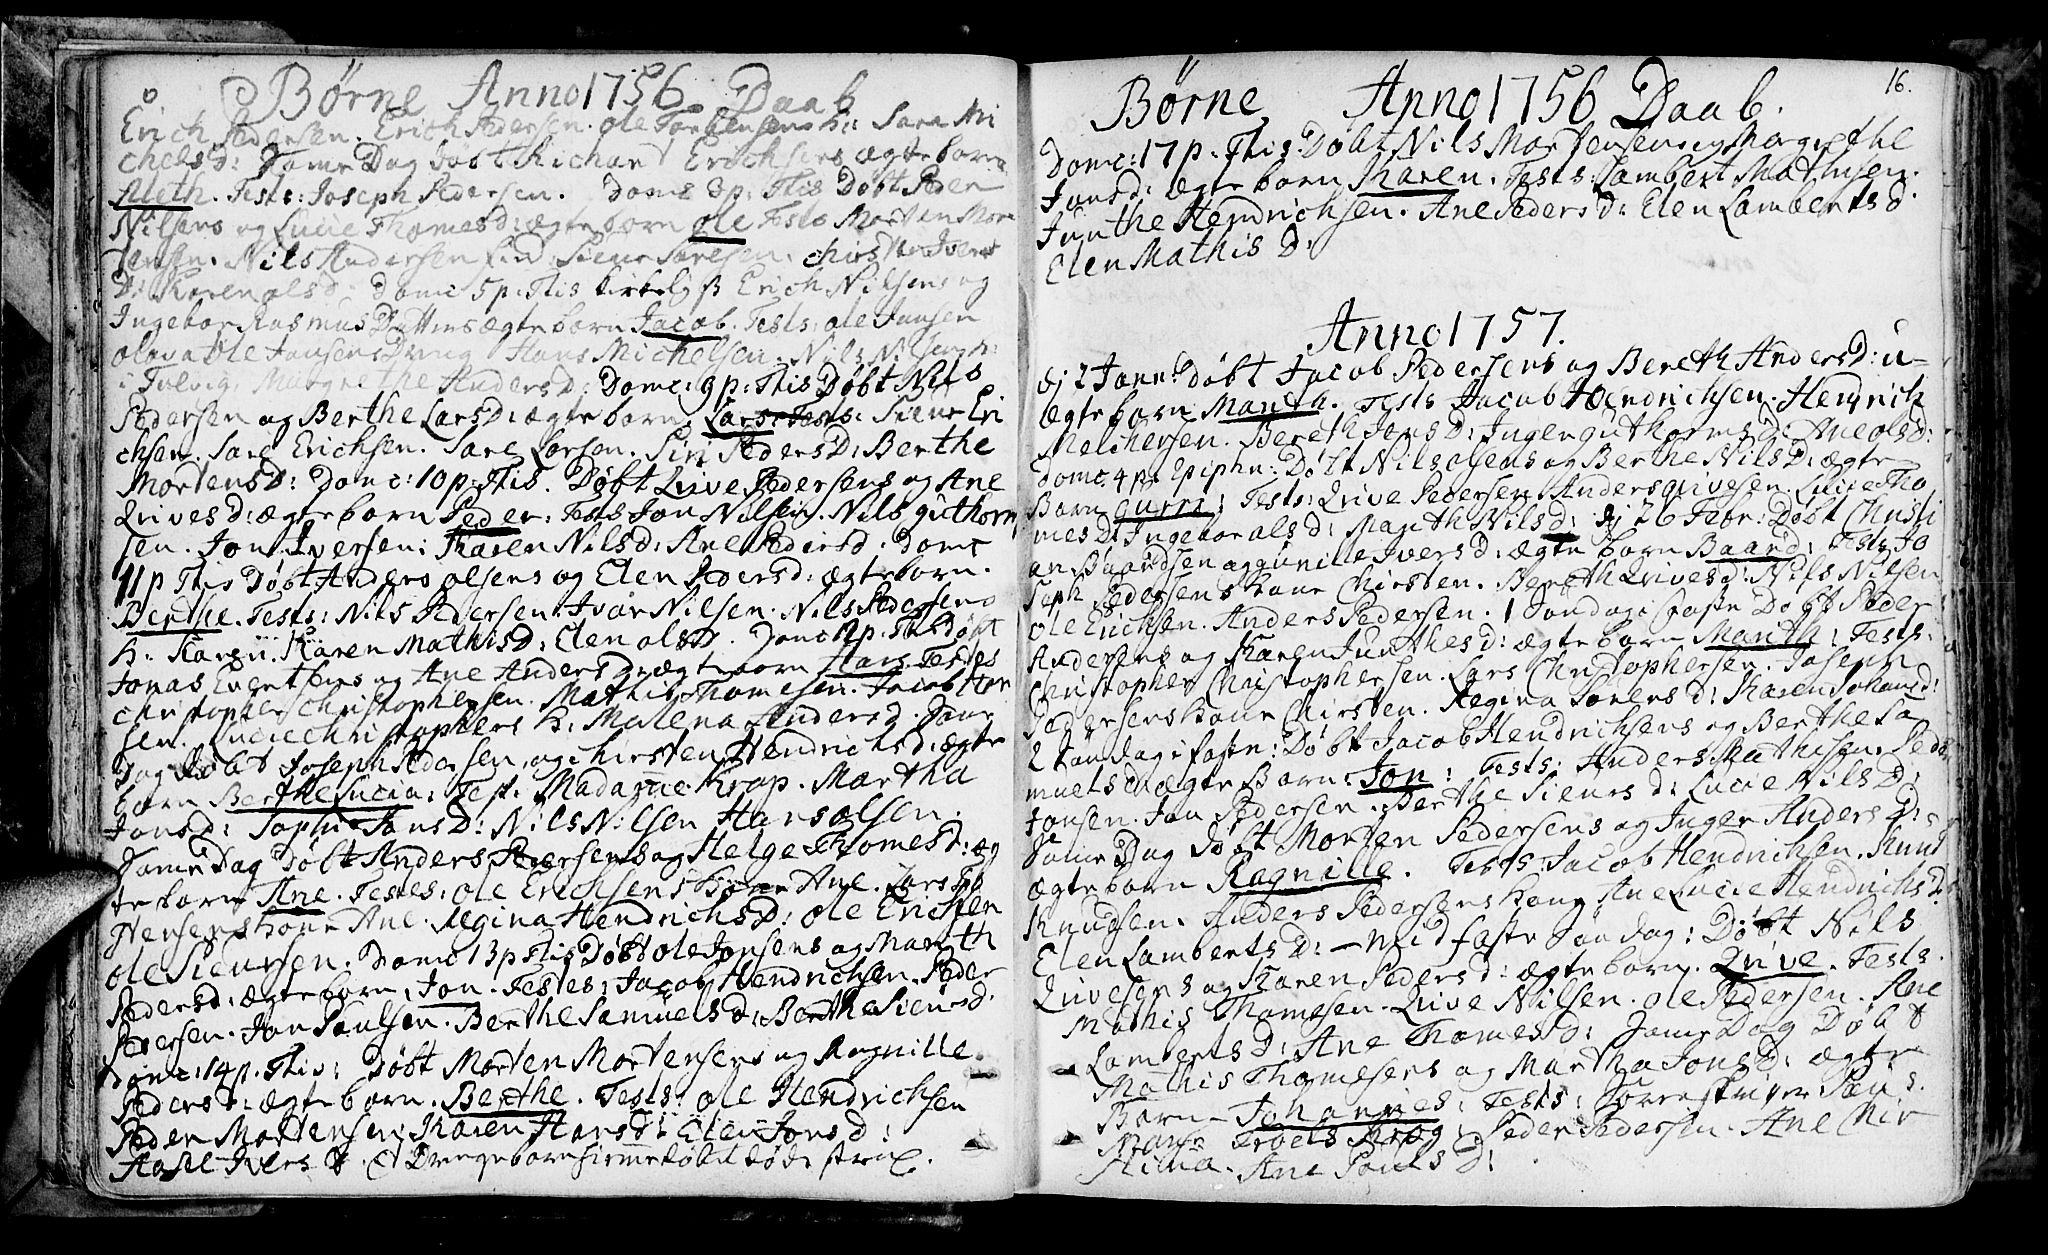 Børne Anno 1756 Daab
Erich Pedersen. Erich Pedersen. Ole Torbensens K: Sara Mi
chelsd: Same Dag Døbt Richart Erichsens ægte barn
Aleth. Tests: Joseph Pedersen. Domc 3 p: Ttis Døbt Peder
Nilsens og Lucie Thomesd: ægte barn Ole Tests Morten Mor
tensen. Nils Andersen Lind. Siener Saresen. Chirsten Ivers
D: Karen Olsd: Domc 5 p: Ttis Erich Nilsens og
Ingebor Rasmus Datters ægte barn Jacob. Tests: Ole Jansen
Ole Jansens Dreng Hans Michelsen. Nils Nilsen
i Tulvig. Margrethe Andersd: Domc: 9 p: Ttis Døbt Nils
Pedersen og Berthe Larsd: ægte barn. Lars. Tests: Siener Eri
chsen. Sare Erichsen. Sare Larsen. Siri Pedersd: Berthe
Mortensd: Domc: 10 p: Ttis. Døbt Qvive Pedersens og Ane
Qvivesd: ægte barn Peder: Tests Jon Nilsen. Nils Guthorm
sen. Jon Iversen: Karen Nilsd: Ane Pedersd: Domc
11 p Ttis Døbt Anders Olsens og Elen Pedersd: ægte barn.
Berthe. Tests: Nils Pedersen. Ivar Nilsen. Nils Pedersens
K: Karen. Karen Mathisd: Elen Olsd. Domc 12 p: Ttis Døbt
Jonas Evertsens og Ane Andersd: ægte barn Hans Testes
Christopher Christophersen. Mathis Thomesen. Jacob Han
sen. Lucie Christophers K: Malena Andersd. Same
Dag Døbt Joseph Pedersen, og Chirsten Hendrichsd: ægte
barn Berthe Lucia: Test: Madame Krog. Martha
Jonsd: Sophi Jonsd: Nils Nilsen Hans Olsen.
Same Dag Døbt Anders Pedersens og Helge Thomesd: æg
te barn Ane. Testes: Ole Erichsens Kone Ane. Lars Jo
Hensens Kone Ane. Regina Hendrichsd: Ole Erichsen
Ole Sienersen. Domc 13 p Ttis Døbt Ole Jonsens og Marith
Pedersd: ægte barn: Jon. Testes: Jacob Hendrichsen. Peder
Iversen. Jon Poulsen. Berthe Samuelsd: Berthe Siensd.
Domc: 14 p. Ttis: Døbt Morten Mortensens og Ragnille
Pedersd: ægte barn. Berthe. Tests: Ole Hendrichsen
Peder Mortensen: Karen Hansd: Elen Jonsd:
Aasel Ivers D. Et Drengebarn hiemedøbt døde strax.
16.
Børne Anno 1756 Daab.
Domc: 17 p. Ttis Døbt Nils Mortensens og Margrethe
Jonsd: ægte barn Karen. Tests: Lambert Mathisen.
Junthe Hendrichsen. Ane Pedersd: Elen Lambertsd.
Elen Mathis D:
Anno 1757.
dj 2 Janr: Døbt Jacob Pedersens og Bereth Andersd: u-
ægte barn Marith. Tests Jacob Hendrichsen. Henrich
Melchersen. Bereth Jonsd: Inger Guthormsd: Ane Olsd:
Domc. 4 p: Epiphn: Døbt Nils Olsens og Berthe Nilsd: ægte
Barn Gurri: Tests: Qvive Pedersen. Anders Qvivesen. Lucie Tho
mesd: Ingebor Alsd: Marith Nilsd: dj 26 Febr: Døbt Christi
an Baardsen og Gunille Iversd: ægte barn Baard: Tests Jo
seph Pedersens Kone Chirsten. Bereth Qvivesd: Nils Nilsen
Ole Erichsen. Anders Pedersen. 1 Søndag i faste Døbt Peder
Andersens og Karen Junthesd: ægte barn Marith: Tests:
Christopher Christophersen. Lars Christophersen. Joseph
Pedersens Kone Chirsten. Regina Sørensd: Karen Johansd:
2 Søndag i faste: Døbt Jacob Hendrichsens og Berthe Sa
muelsd: ægte Barn: Jon: Tests: Anders Mathisen. Peder
Jonsen. Jon Pedersen. Berthe Sieners d: Lucie Nilsd:
Same Dag Døbt Morten Pedersens og Inger Anders D:
ægte barn Ragnille. Tests: Jacob Hendrichsen. Knud
Knudsen. Anders Pedersens Kone Ane Lucie Hendrichsd:
Elen Lamberts D: - Midfaste Søndag: Døbt Nils
Qvivesens og Karen Pedersd: ægte barn. Qvive. Tests.
Mathis Thomesen. Qvive Nilsen. Ole Pedersen. Ane
Lamberts D: Ane Thomesd: Same Dag Døbt
Mathis Thomesens og Martha Jonsd: ægte
Barn - Johannes: Tests: Forrestmyer
Mons: Troels Krog: Peder Pedersen. Ane Chir
stina. Ane Pouls D: